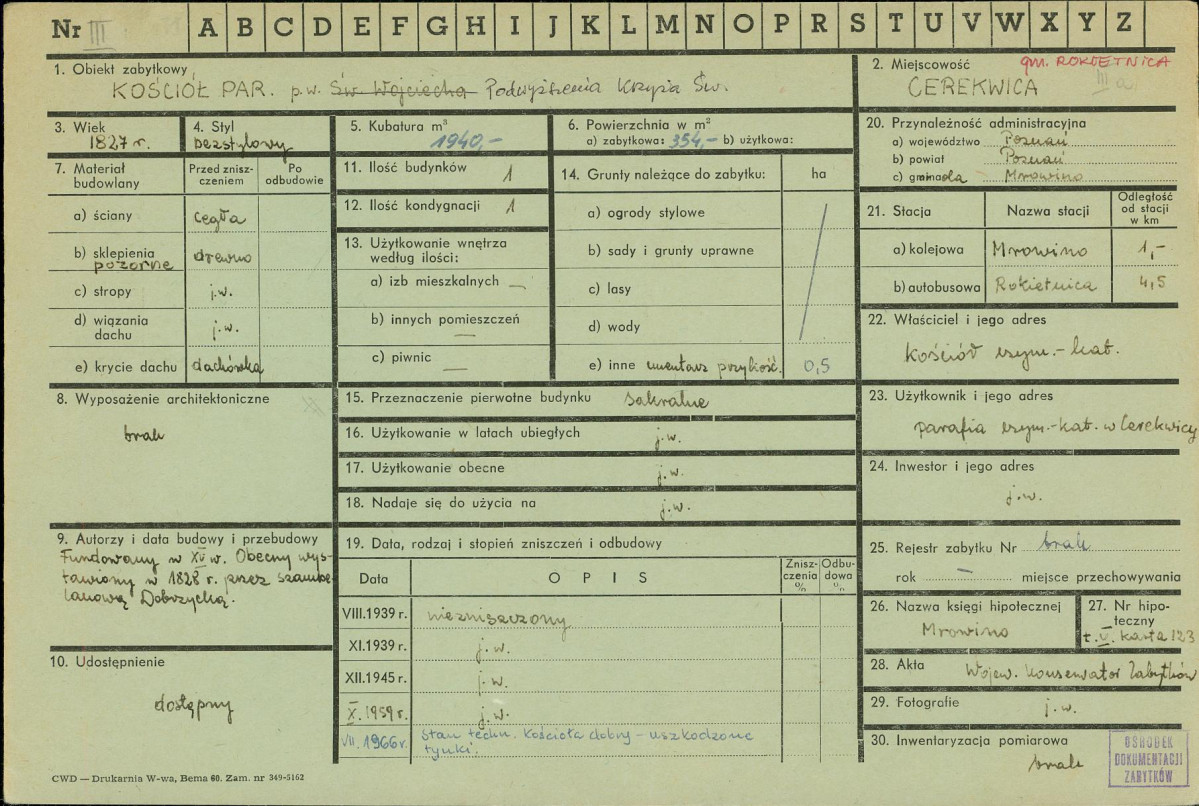 Nr III A B C D E F G H I J K L M N O P R S T U V W X Y Z
1. Obiekt zabytkowy
KOŚCIÓŁ PAR. p.w. Św. Wojciecha Podwyższenia Krzyża Św.
2. Miejscowość gm. ROKIETNICA
CEREKWICA
III a
3. Wiek
1827 r.
4. Styl
bezstylowy
5. Kubatura m³
1940,-
6. Powierzchnia w m²
a) zabytkowa: 354,- b) użytkowa:
7. Materiał budowlany
Przed zniszczeniem
Po odbudowie
a) ściany cegła
b) sklepienia pozorne drewno
c) stropy j.w.
d) wiązania dachu j.w.
e) krycie dachu dachówka
8. Wyposażenie architektoniczne
brak
9. Autorzy i data budowy i przebudowy
Fundowany w XV w. Obecny wys-
tawiony w 1828 r. przez szambe-
lanową Dobrzycką.
10. Udostępnienie
dostępny
11. Ilość budynków 1
12. Ilość kondygnacji 1
13. Użytkowanie wnętrza
według ilości:
a) izb mieszkalnych —
b) innych pomieszczeń
—
c) piwnic —
14. Grunty należące do zabytku: ha
a) ogrody stylowe
b) sady i grunty uprawne
c) lasy
d) wody
e) inne cmentarz przykość. 0,5
15. Przeznaczenie pierwotne budynku sakralne
16. Użytkowanie w latach ubiegłych j.w.
17. Użytkowanie obecne j.w.
18. Nadaje się do użycia na j.w.
19. Data, rodzaj i stopień zniszczeń i odbudowy
Data OPIS Zniszczenia % Odbudowa %
VIII.1939 r. niezniszczony
XI.1939 r. j.w.
XII.1945 r. j.w.
X.1959 r. j.w.
VII.1966 r. Stan techn. Kościoła dobry – uszkodzone
tynki.
20. Przynależność administracyjna
a) województwo Poznań
b) powiat Poznań
c) gromada Mrowino
21. Stacja Nazwa stacji Odległość od stacji w km
a) kolejowa Mrowino 1,-
b) autobusowa Rokietnica 4,5
22. Właściciel i jego adres
Kościół rzym.-kat.
23. Użytkownik i jego adres
parafia rzym.-kat. w Cerekwicy
24. Inwestor i jego adres
j.w.
25. Rejestr zabytku Nr brak
rok — miejsce przechowywania
26. Nazwa księgi hipotecznej
Mrowino
27. Nr hipoteczny
t. V. karta 123
28. Akta Wojew. Konserwator Zabytków
29. Fotografie j.w.
30. Inwentaryzacja pomiarowa
brak
OŚRODEK
DOKUMENTACJI
ZABYTKÓW
CWD — Drukarnia W-wa, Bema 60. Zam. nr 349-5162